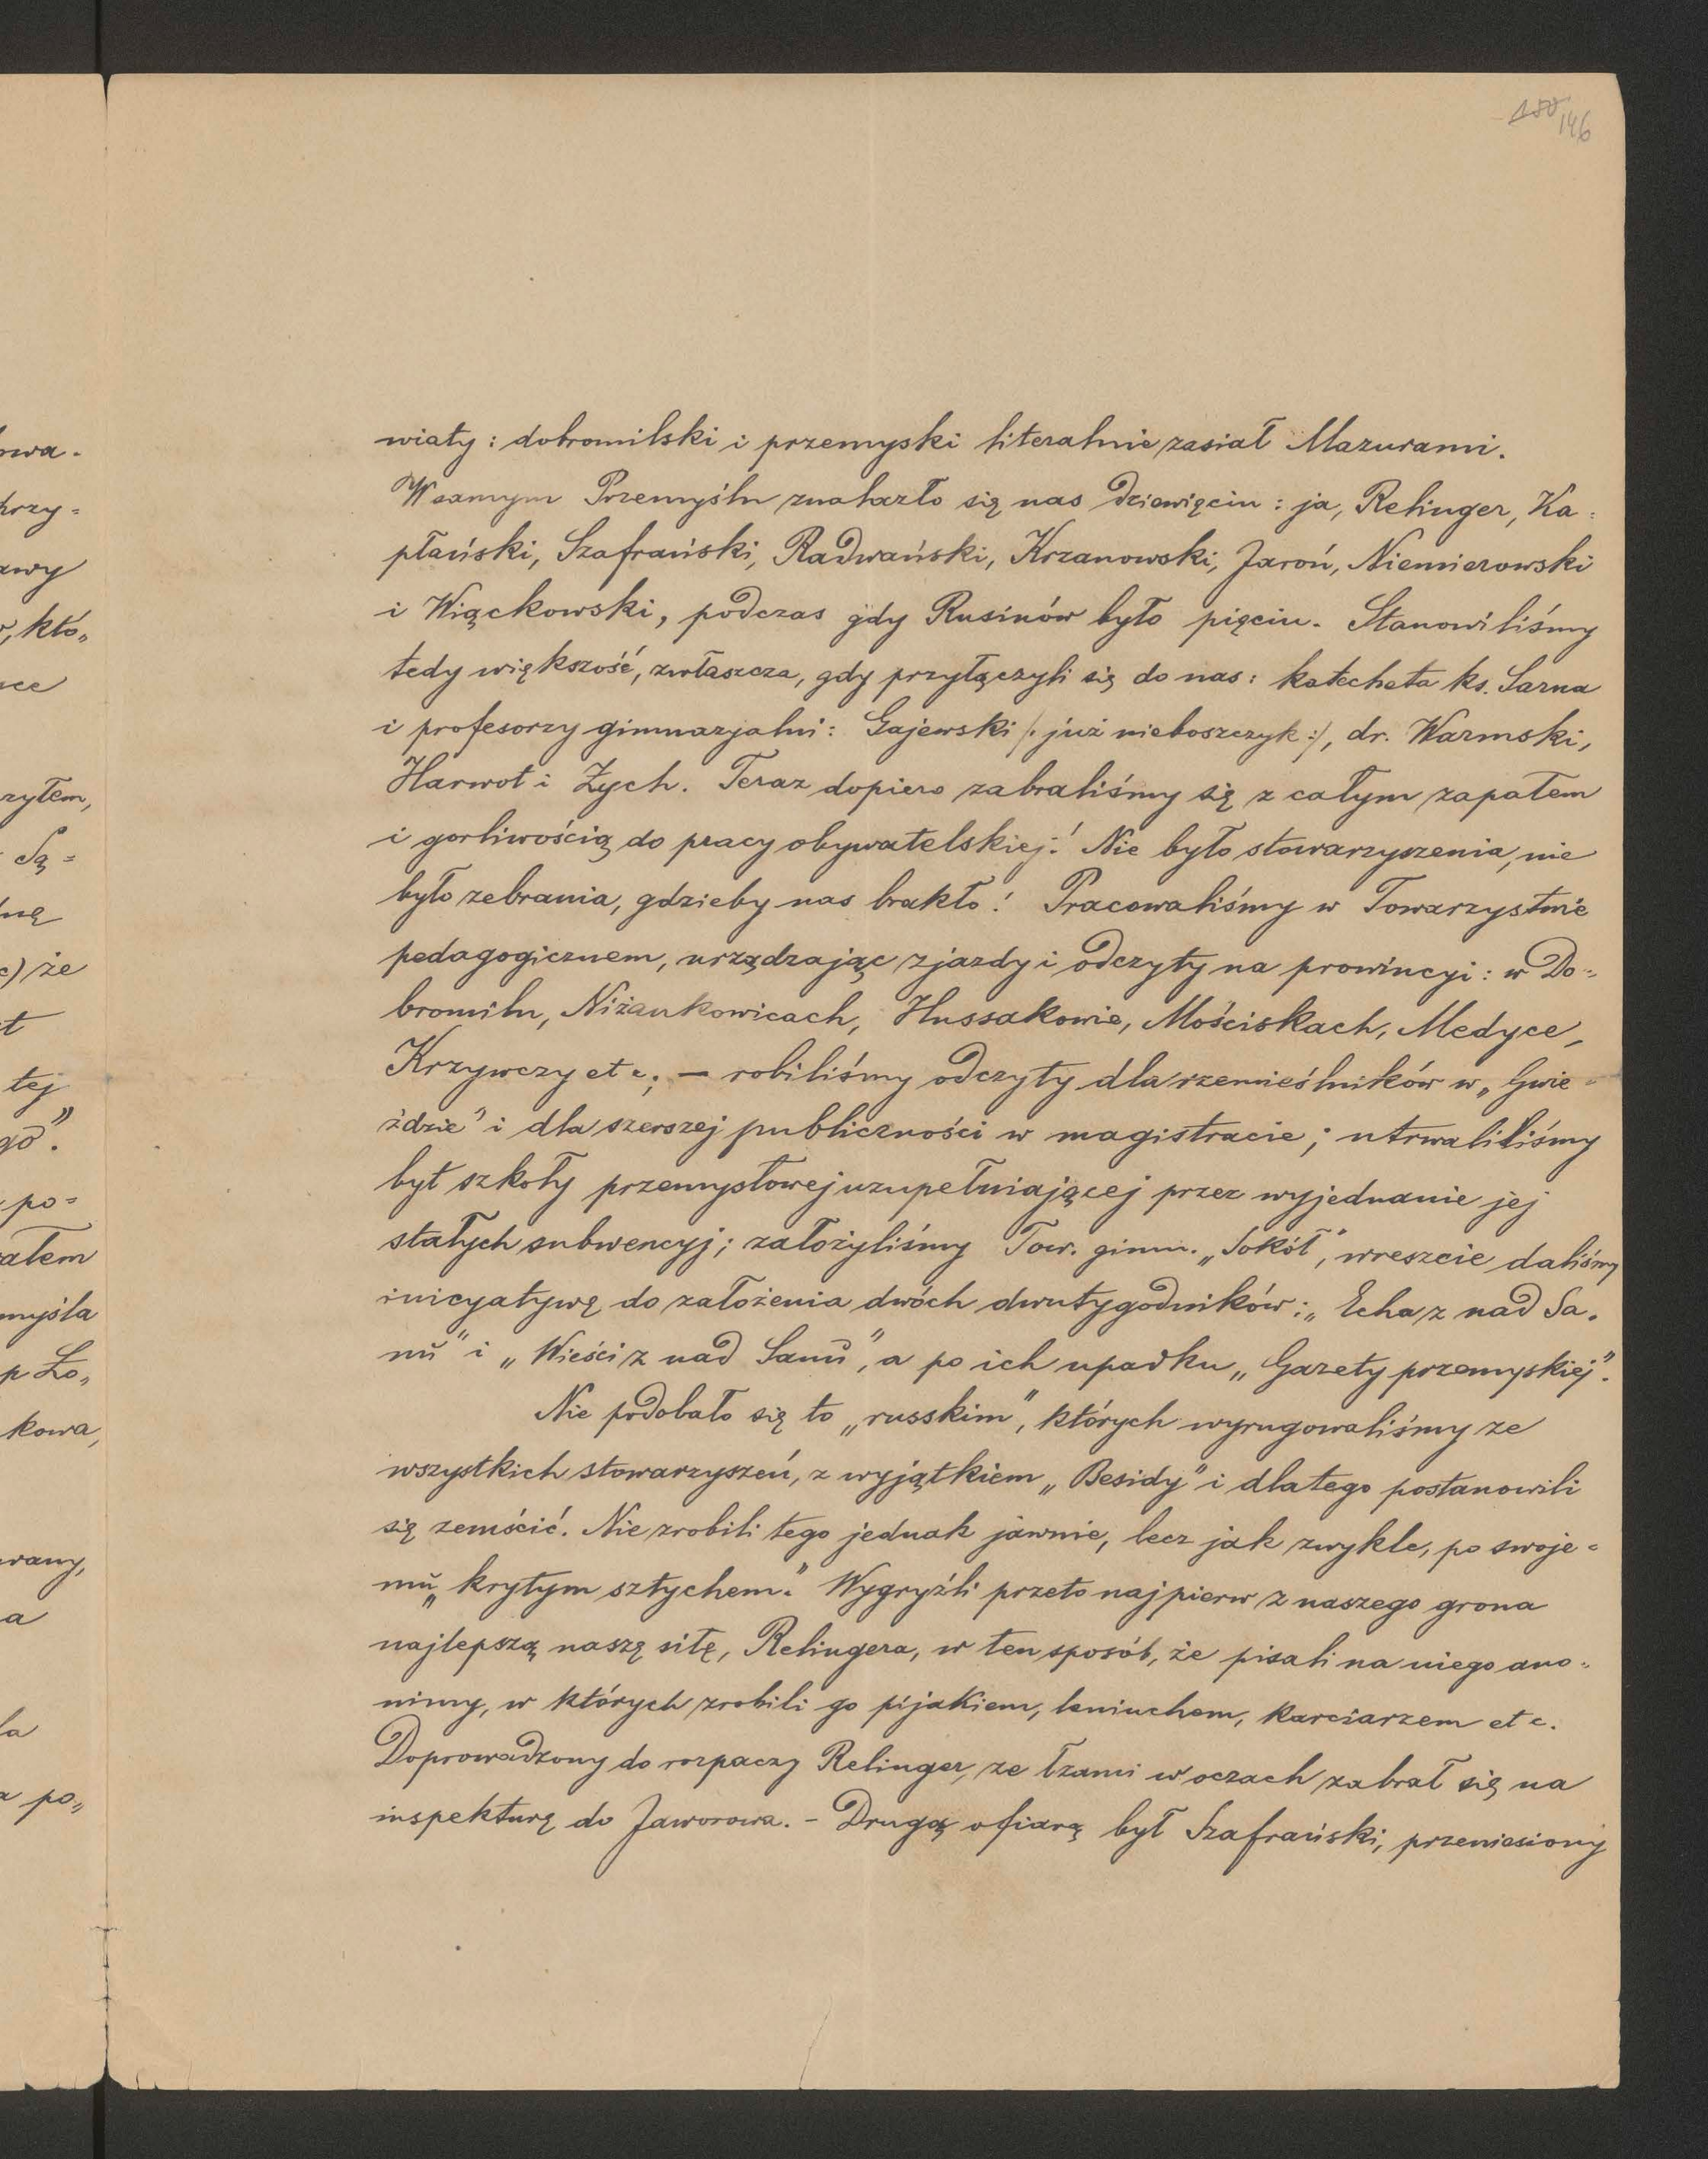 150 146
wiaty: dobromilski i przemyski literalnie zasiał Mazurami.
W samym Przemyślu znalazło się nas dziewięciu: ja, Relinger, Ka-
płański, Szafrański, Radwański, Krzanowski, Jaroń, Niemierowski
i Wiąckowski, podczas gdy Rusinów było pięciu. Stanowiliśmy
tedy większość, zwłaszcza, gdy przyłączyli się do nas: katecheta ks. Sarna
i profesorzy gimnazjalni: Gajewski /: już nieboszczyk :/, dr. Warmski,
Harwot i Zych. Teraz dopiero zabraliśmy się z całym zapałem
i gorliwością do pracy obywatelskiej! Nie było stowarzyszenia, nie
było zebrania, gdzieby nas brakło! Pracowaliśmy w Towarzystwie
pedagogicznem, urządzając zjazdy i odczyty na prowincyi: w Do-
bromilu, Niżankowicach, Hussakowie, Mościskach, Medyce,
Krzywczy etc; — robiliśmy odczyty dla rzemieślników w „Gwie-
ździe" i dla szerszej publiczności w magistracie; utrwaliliśmy
byt szkoły przemysłowej uzupełniającej przez wyjednanie jej
stałych subwencyj; założyliśmy Tow. gimn. „Sokół", wreszcie daliśmy
inicyatywę do założenia dwóch dwutygodników: „Echa z nad Sa-
nu" i „Wieści z nad Sanu", a po ich upadku „Gazety przemyskiej".
Nie podobało się to „russkim", których wyrugowaliśmy ze
wszystkich stowarzyszeń, z wyjątkiem „Besidy" i dlatego postanowili
się zemścić. Nie zrobili tego jednak jawnie, lecz jak zwykle, po swoje-
mu „krytym sztychem." Wygryźli przeto najpierw z naszego grona
najlepszą naszę siłę, Relingera, w ten sposób, że pisali na niego ano-
nimy, w których zrobili go pijakiem, leniuchem, karciarzem etc.
Doprowadzony do rozpaczy Relinger, ze łzami w oczach zabrał się na
inspekturę do Jaworowa. - Drugą ofiarą był Szafrański, przeniesiony